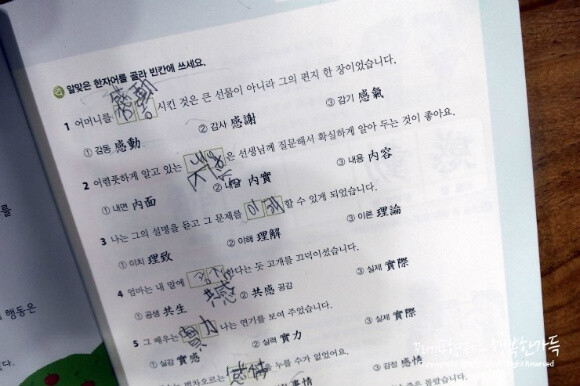 알맞은 한자어를 골라 빈칸에 쓰세요.
1 어머니를 感動 시킨 것은 큰 선물이 아니라 그의 편지 한 장이었습니다.
① 감동 感動 ② 감사 感謝 ③ 감기 感氣
2 어렴풋하게 알고 있는 내용 은 선생님께 질문해서 확실하게 알아 두는 것이 좋아요.
① 내면 內面 ② 내실 內實 ③ 내용 內容
3 나는 그의 설명을 듣고 그 문제를 이해 할 수 있게 되었습니다.
① 이치 理致 ② 이해 理解 ③ 이론 理論
4 엄마는 내 말에 공감 한다는 듯 고개를 끄덕이셨습니다.
共感
① 공생 共生 ② 共感 공감 ③ 실제 實際
5 그 배우는 實力 나는 연기를 보여 주었습니다.
① 실감 實感 ② 실력 實力 ③ 실제 實際
누를 수가 없었어요.
事情 ③ 감정 感情
를
행동은